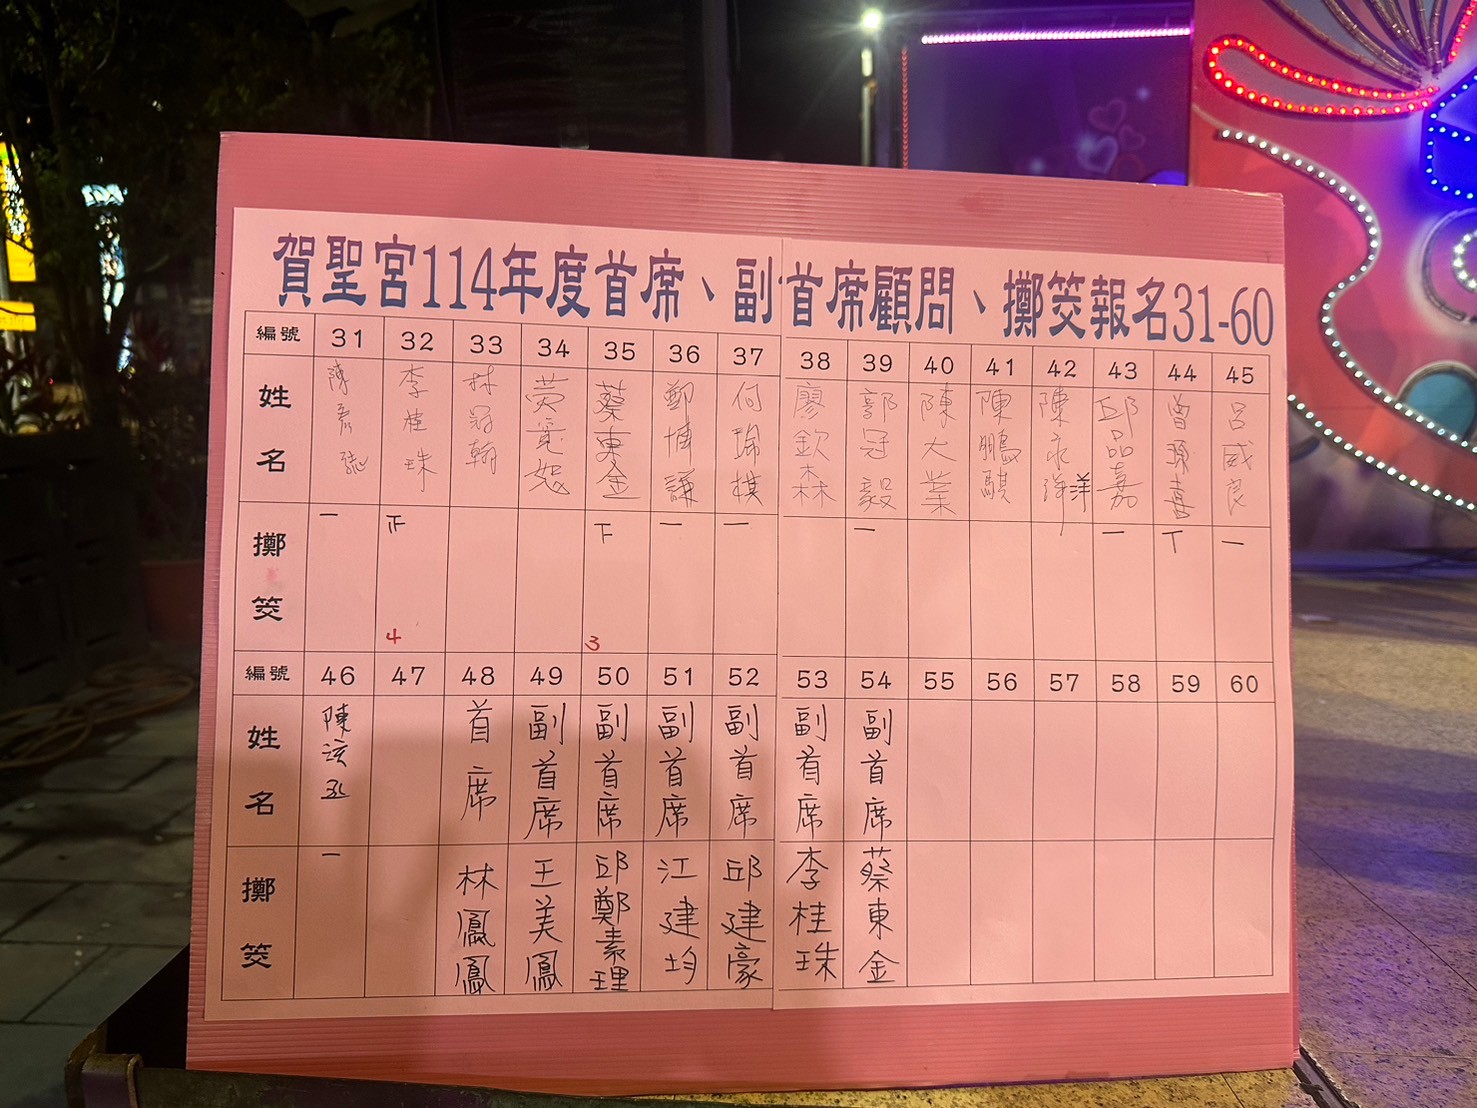 賀聖宮114年度首席、副首席顧問、擲筊報名31-60
編號 31 32 33 34 35 36 37 38 39 40 41 42 43 44 45
姓名 李桂珠 林冠翰 蔡東金 鄭博謙 何瑜棋 廖欽森 郭冠毅 陳大業 陳鵬騏 陳永洋 邱品嘉 呂威良
擲筊 一 正 4 下 3 一 一 一 一 丅 一
編號 46 47 48 49 50 51 52 53 54 55 56 57 58 59 60
姓名 首席 副首席 副首席 副首席 副首席 副首席 副首席
擲筊 一 林鳳鳳 王美鳳 邱鄭素理 江建均 邱建豪 李桂珠 蔡東金